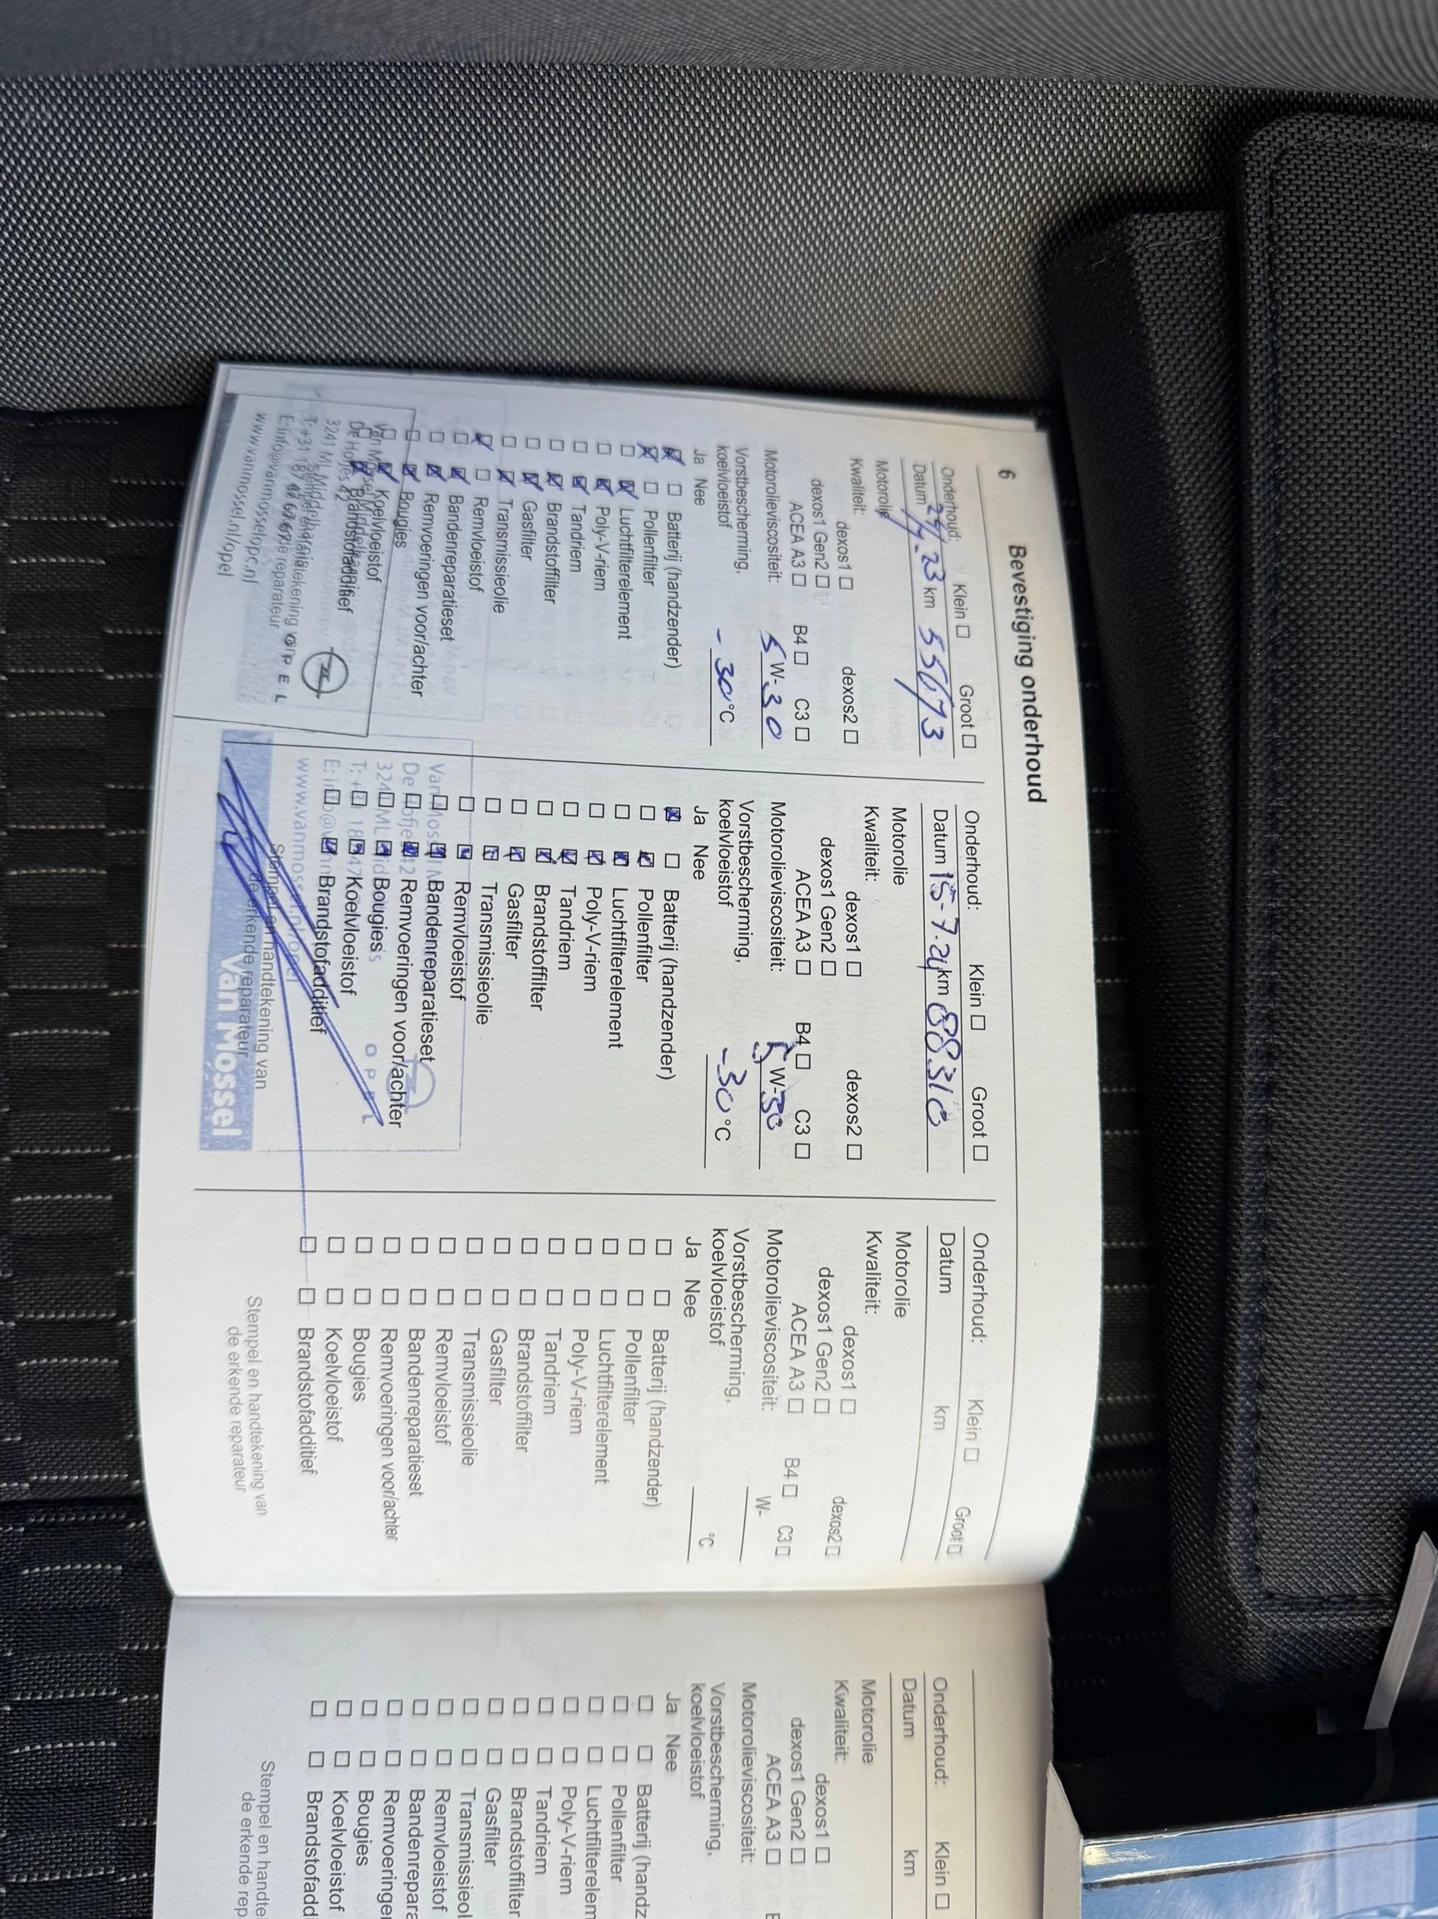 6
Bevestiging onderhoud
Onderhoud: Klein Groot
Datum 24/7.23 km 55673
Motorolie
Kwaliteit: dexos1 dexos2
dexos1 Gen2
ACEA A3 B4 C3
Motorolieviscositeit: 5 W- 30
Vorstbescherming,
koelvloeistof -30 °C
Ja Nee
Batterij (handzender)
Pollenfilter
Luchtfilterelement
Poly-V-riem
Tandriem
Brandstoffilter
Gasfilter
Transmissieolie
Remvloeistof
Bandenreparatieset
Remvoeringen voor/achter
Bougies
Koelvloeistof
Brandstofadditief
3241 ML
OPEL
www.vanmossel.nl/opel
Onderhoud: Klein Groot
Datum 15-7-24 km 88310
Motorolie
Kwaliteit: dexos1 dexos2
dexos1 Gen2
ACEA A3 B4 C3
Motorolieviscositeit: 5 W- 30
Vorstbescherming,
koelvloeistof -30 °C
Ja Nee
Batterij (handzender)
Pollenfilter
Luchtfilterelement
Poly-V-riem
Tandriem
Brandstoffilter
Gasfilter
Transmissieolie
Remvloeistof
Bandenreparatieset
Remvoeringen voor/achter
Bougies
Koelvloeistof
Brandstofadditief
OPEL
Stempel en handtekening van
de erkende reparateur
Van Mossel
Onderhoud: Klein Groot
Datum km
Motorolie
Kwaliteit: dexos1 dexos2
dexos1 Gen2
ACEA A3 B4 C3
Motorolieviscositeit: W-
Vorstbescherming,
koelvloeistof °C
Ja Nee
Batterij (handzender)
Pollenfilter
Luchtfilterelement
Poly-V-riem
Tandriem
Brandstoffilter
Gasfilter
Transmissieolie
Remvloeistof
Bandenreparatieset
Remvoeringen voor/achter
Bougies
Koelvloeistof
Brandstofadditief
Stempel en handtekening van
de erkende reparateur
Onderhoud: Klein
Datum km
Motorolie
Kwaliteit: dexos1
dexos1 Gen2
ACEA A3
Motorolieviscositeit:
Vorstbescherming,
koelvloeistof
Ja Nee
Batterij (handz
Pollenfilter
Luchtfilterelem
Poly-V-riem
Tandriem
Brandstoffilter
Gasfilter
Transmissieol
Remvloeistof
Bandenrepara
Remvoeringen
Bougies
Koelvloeistof
Brandstofaddi
Stempel en handte
de erkende rep